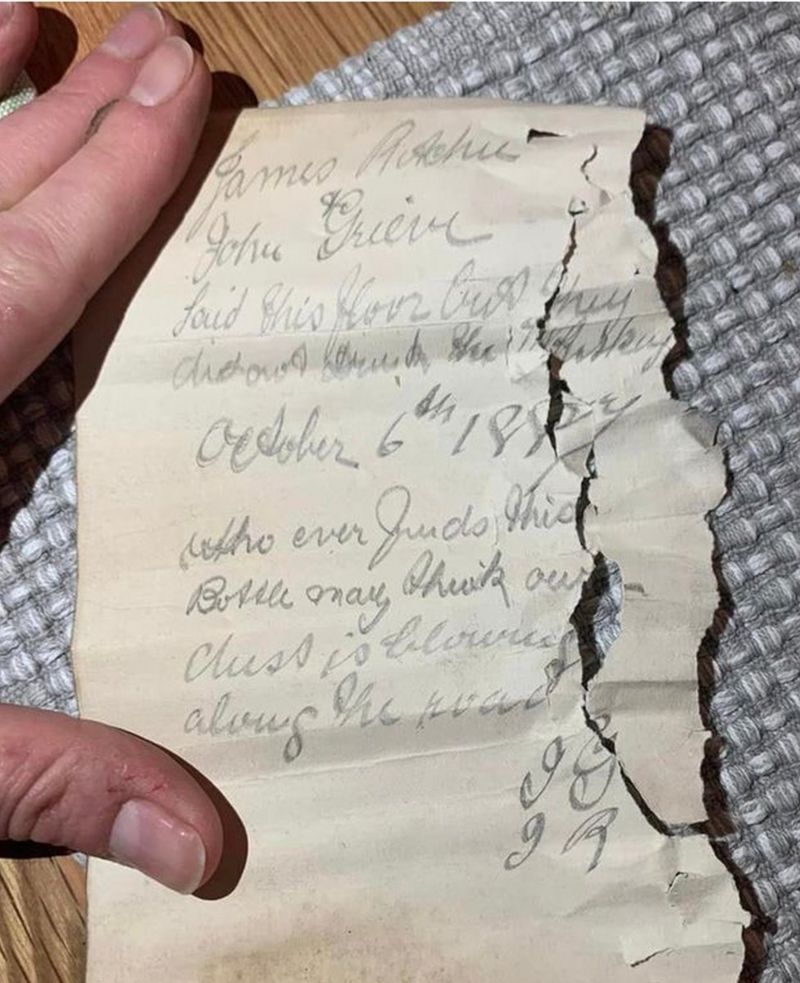 James Ritchie
&
John Grieve
laid this floor but they
did not drink the Whiskey
October 6th 1887
Who ever finds this
Bottle may think our
dust is blowing
along the road
J G
J R